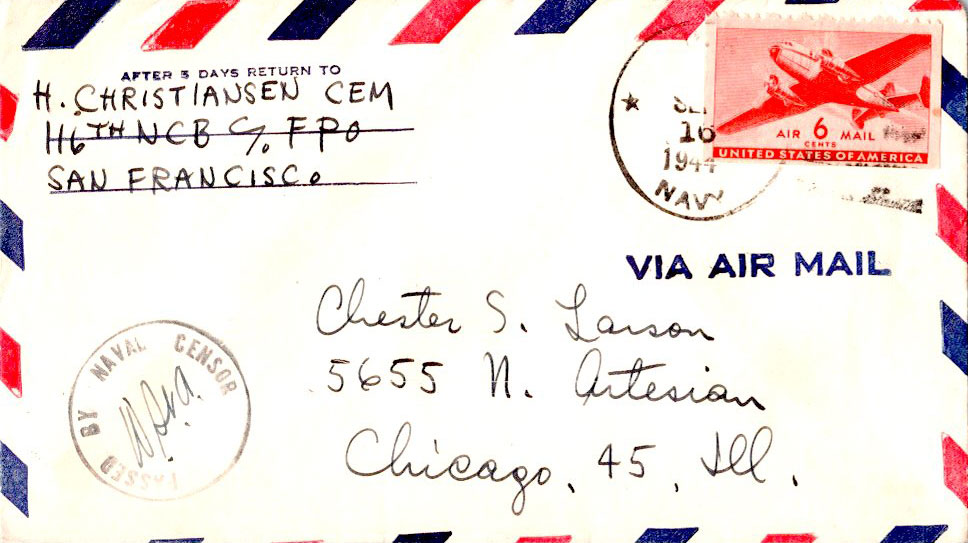 AFTER 5 DAYS RETURN TO
H. CHRISTIANSEN CEM
116TH NCB C/O FPO
SAN FRANCISCO
16
1944
NAVY
AIR 6 MAIL
CENTS
UNITED STATES OF AMERICA
VIA AIR MAIL
Chester S. Larson
5655 N. Artesian
Chicago, 45, Ill.
PASSED BY NAVAL CENSOR